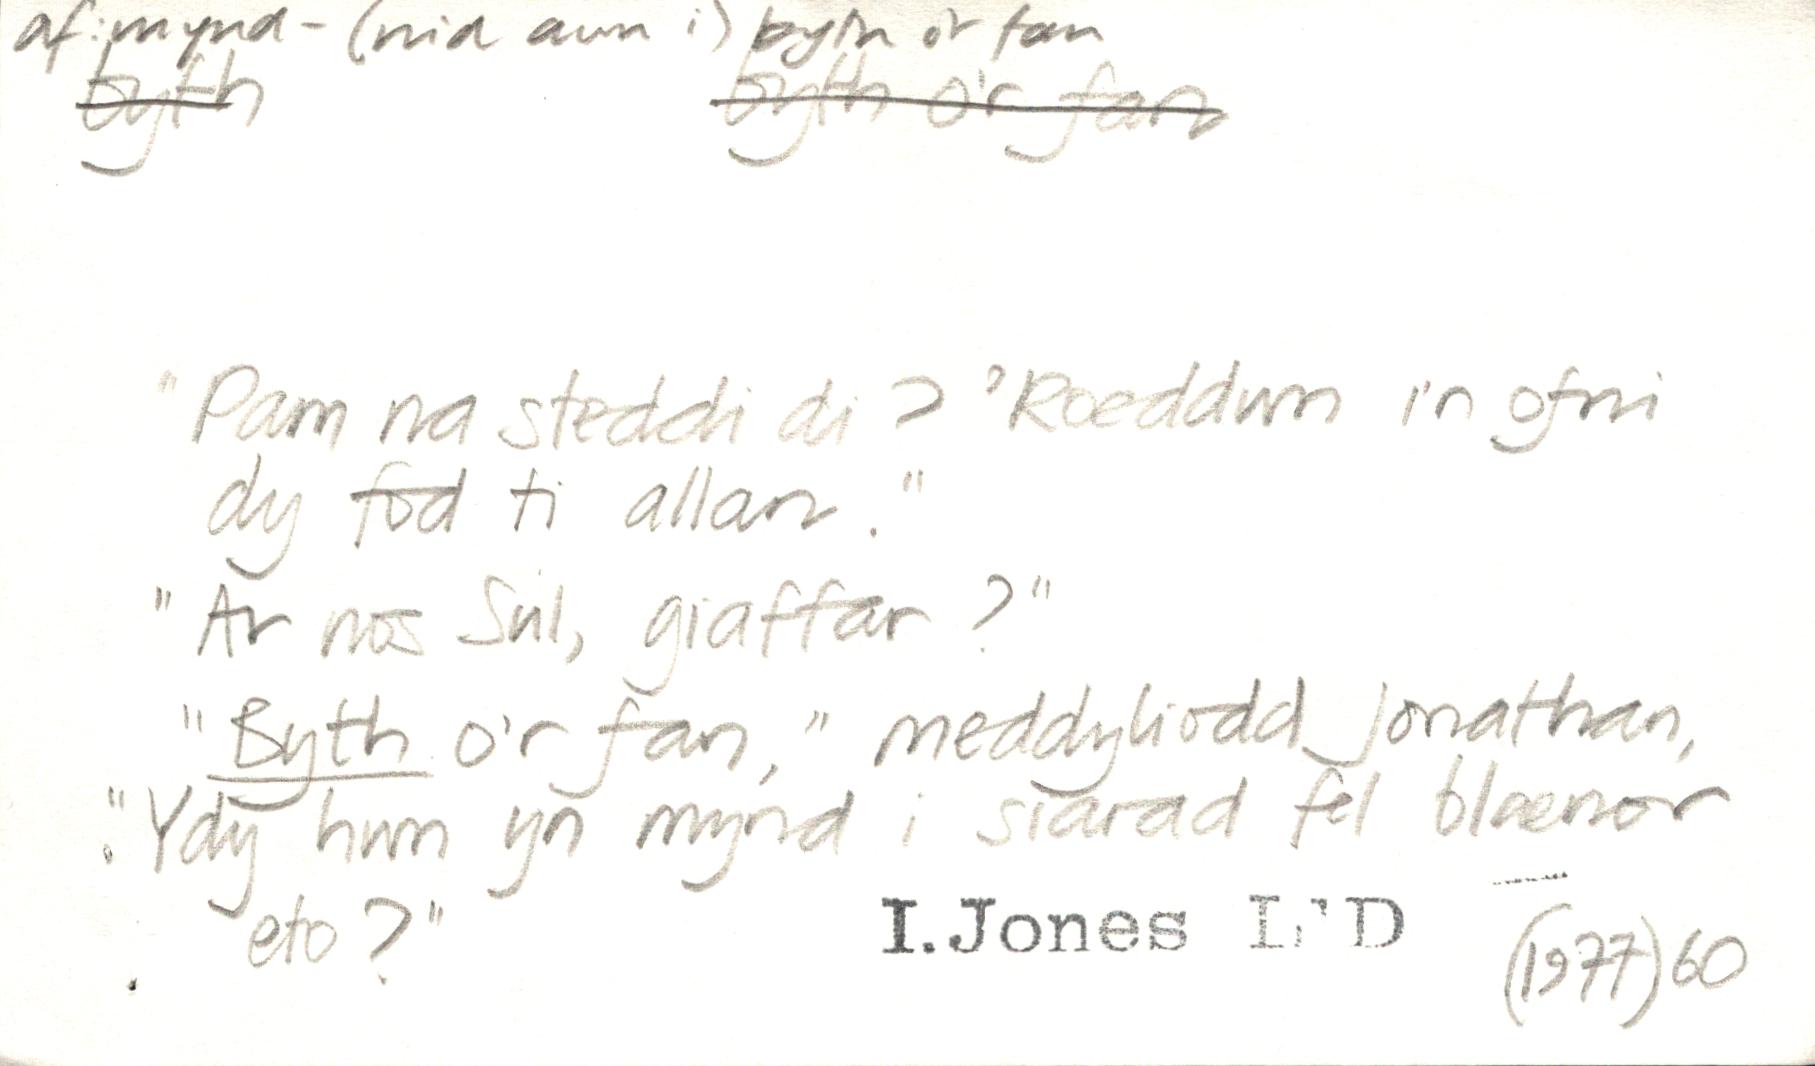 af: mynd - (nid awn i) byth o'r fan
byth byth o'r fan
"Pam na steddi di? 'Roeddwn i'n ofni
dy fod ti allan."
"Ar nos Sul, giaffar?"
"Byth o'r fan," meddyliodd Jonathan,
"Ydy hwn yn mynd i siarad fel blaenor
eto?"
I.Jones L'D (1977) 60